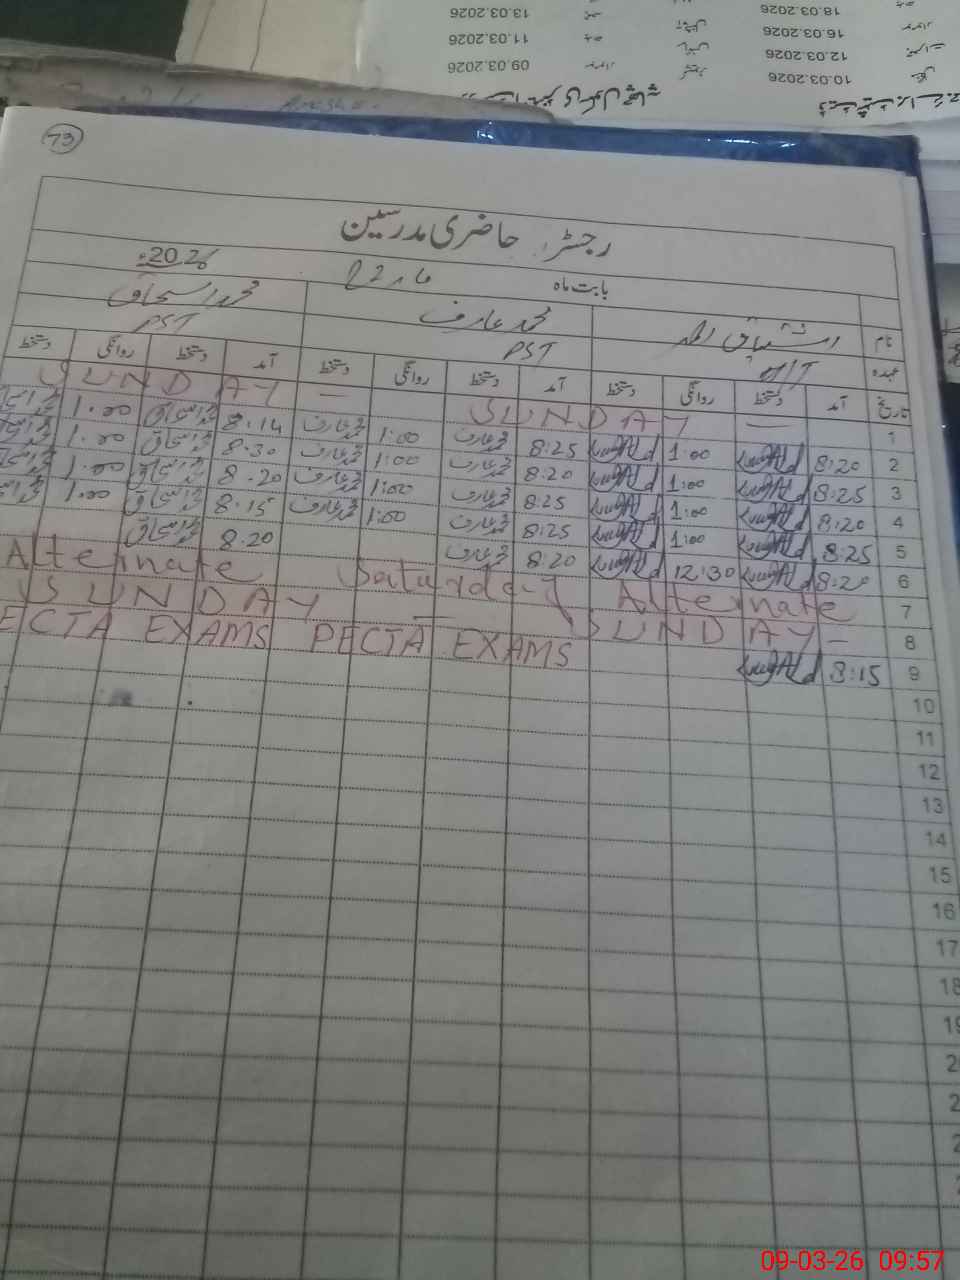 13.03.2026
18.03.2026
11.03.2026
16.03.2026
09.03.2026
12.03.2026
10.03.2026
73
رجسٹر حاضری مدرسین
بابت ماہ مارچ 2026ء
نام اشتیاق احمد محمد عارف محمد اسحاق
عہدہ PST PST
تاریخ آمد دستخط روانگی دستخط آمد دستخط روانگی دستخط آمد دستخط روانگی دستخط
1 SUNDAY — SUNDAY —
2 8:20 1:00 8:25 محمد عارف 1:00 محمد عارف 8.14 محمد اسحاق 1.00 محمد اسحاق
3 8:25 1:00 8:20 محمد عارف 1:00 محمد عارف 8.30 محمد اسحاق 1.00 محمد اسحاق
4 8:20 1:00 8:25 محمد عارف 1:00 محمد عارف 8.20 محمد اسحاق 1.00 محمد اسحاق
5 8:25 1:00 8:25 محمد عارف 1:00 محمد عارف 8.15 محمد اسحاق 1.00 محمد اسحاق
6 8:20 12:30 8:20 محمد عارف 8.20 محمد اسحاق
7 Alternate Saturday Alternate
8 SUNDAY — SUNDAY —
9 8:15 PECTA EXAMS ECTA EXAMS
10
11
12
13
14
15
16
17
18
19
09-03-26 09:57